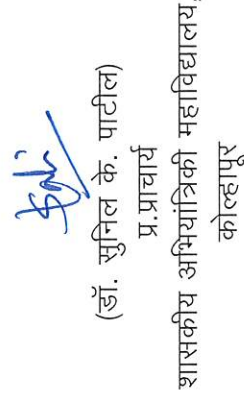 (डॉ. सुनिल के. पाटील)
प्र.प्राचार्य
शासकीय अभियांत्रिकी महाविद्यालय,
कोल्हापूर